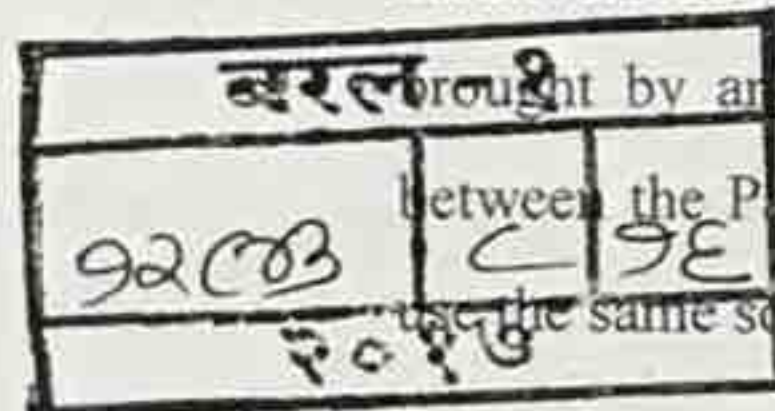 बरल - १
brought by an
between the
८ १६
use the same
२०१७